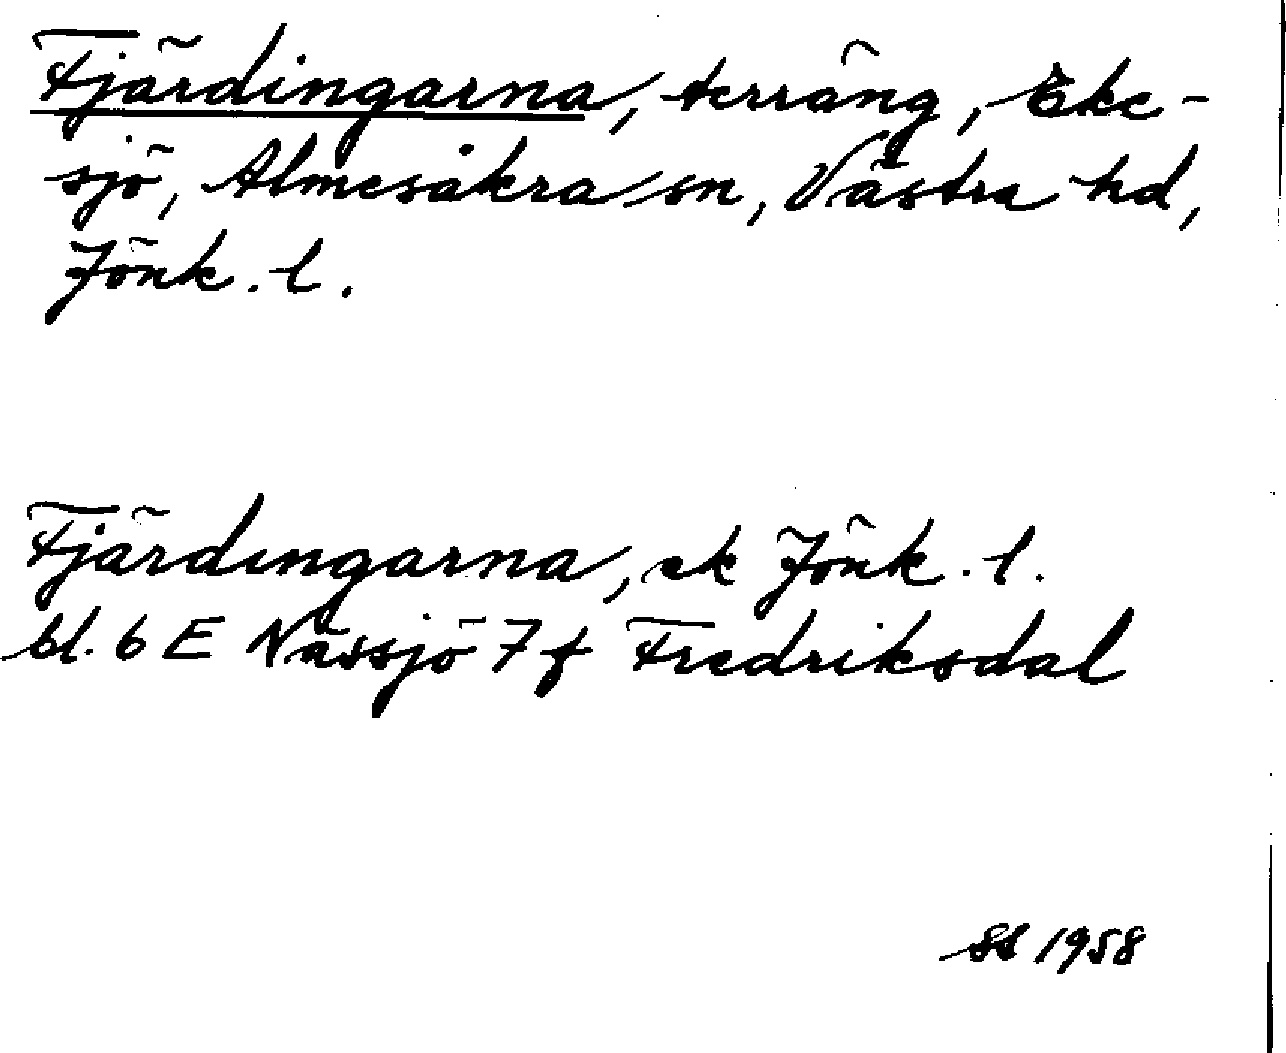 Fjärdingarna, terräng, Eke-
sjö, Almesåkra sn, Västra hd,
Jönk. l.
Fjärdingarna, ek Jönk. l.
bl. 6 E Nässjö 7f Fredriksdal
1958